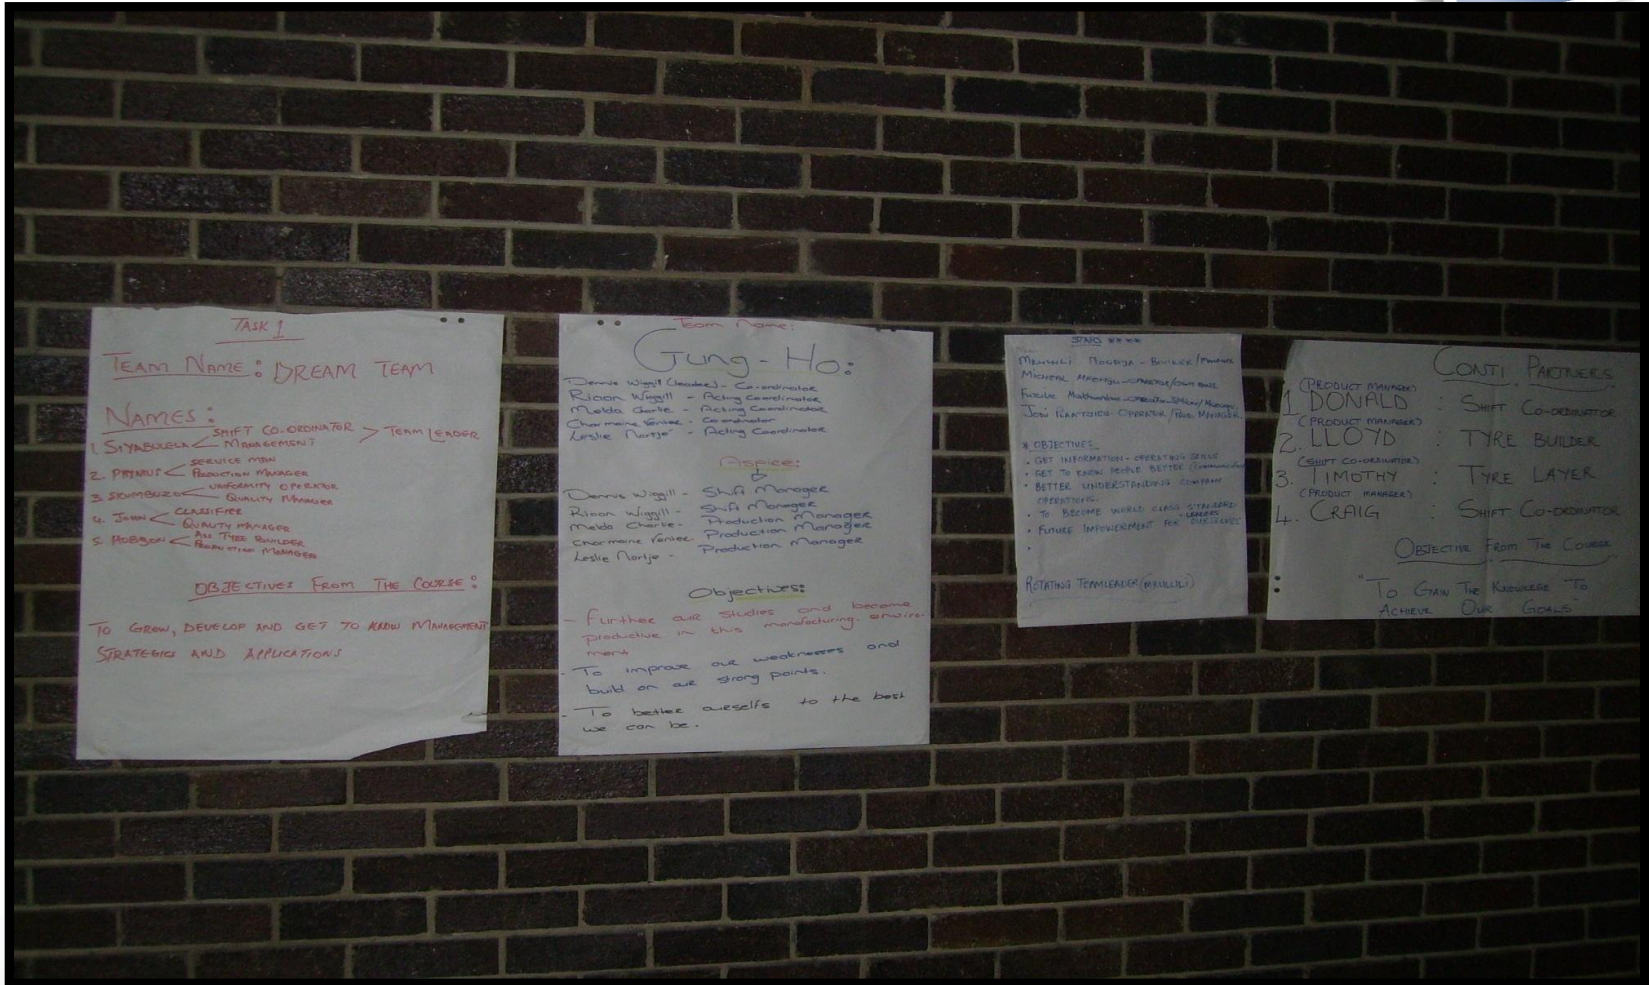 TASK 1
TEAM NAME: DREAM TEAM
NAMES:
1. SIYABULELA < SHIFT CO-ORDINATOR > TEAM LEADER
MANAGEMENT
2. PRIMUS < SERVICE MAN
PRODUCTION MANAGER
3. < UNIFORMITY OPERATOR
QUALITY MANAGER
4. JOHN < CLASSIFIER
QUALITY MANAGER
5. HOBSON < TYRE BUILDER
PRODUCTION MANAGER
OBJECTIVES FROM THE COURSE:
TO GROW, DEVELOP AND GET TO KNOW MANAGEMENT
STRATEGIES AND APPLICATIONS
Team Name:
Gung-Ho:
Dennis Wiggill (leader) - Co-ordinator
Riaan Wiggill - Acting Coordinator
Melda - Acting Coordinator
Charmaine Venter - Co-ordinator
Leslie Nortje - Acting Coordinator
Aspire:
Dennis Wiggill - Shift Manager
Riaan Wiggill - Shift Manager
Melda - Production Manager
Charmaine Venter - Production Manager
Leslie Nortje - Production Manager
Objectives:
- Further our studies and become
productive in this manufacturing environ-
ment
- To improve our weaknesses and
build on our strong points.
- To better ourselfs to the best
we can be.
* OBJECTIVES
• GET INFORMATION - OPERATING SKILLS
• GET TO KNOW PEOPLE BETTER
• BETTER UNDERSTANDING COMPANY
OPERATIONS.
• TO BECOME WORLD CLASS STANDARD
LEADERS
• FUTURE IMPOWERMENT FOR OURSELVES
ROTATING TEAMLEADER (MKULULI)
CONTI PARTNERS
(PRODUCT MANAGER)
1. DONALD : SHIFT CO-ORDINATOR
(PRODUCT MANAGER)
2. LLOYD : TYRE BUILDER
(SHIFT CO-ORDINATOR)
3. TIMOTHY : TYRE LAYER
(PRODUCT MANAGER)
4. CRAIG : SHIFT CO-ORDINATOR
OBJECTIVE FROM THE COURSE
"TO GAIN THE KNOWLEDGE TO
ACHIEVE OUR GOALS"